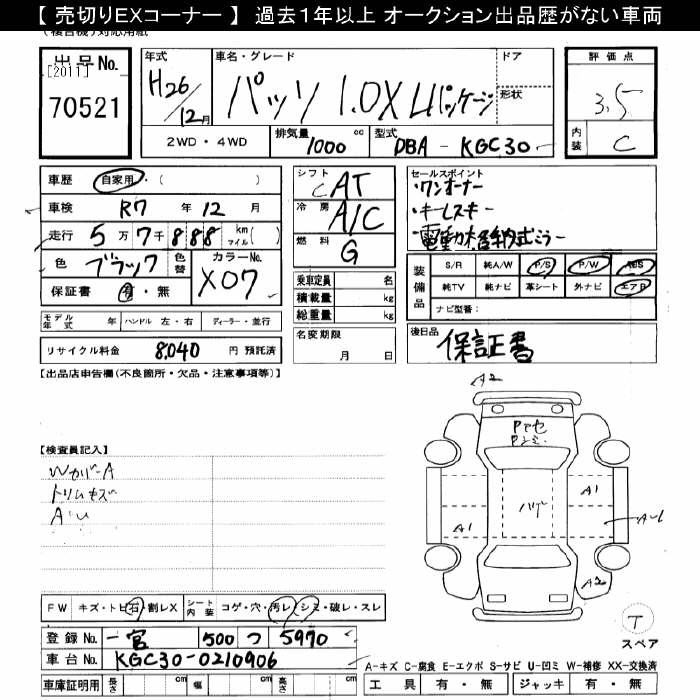 【 売切りEXコーナー 】 過去1年以上 オークション出品歴がない車両
出品No.
[2011]
70521
年式
H26/12月
車名・グレード
パッソ 1.0X Lパッケージ
ドア
形状
2WD・4WD
排気量
1000 cc
型式
DBA - KGC30
評価点
3.5
内装
C
車歴 自家用・( )
車検 R7 年 12 月
走行 5万7千888 km マイル( )
色 ブラック 色替
カラーNo.
X07
保証書 有・無
シフト
CAT
冷房
A/C
燃料
G
セールスポイント
・ワンオーナー
・キーレスキー
・電動格納式ミラー
装備品
S/R 純A/W P/S P/W ABS
純TV 純ナビ 革シート 外ナビ エアB
ナビ型番:
乗車定員 名
積載量 kg
総重量 kg
モデル年式 年 ハンドル 左・右 ディーラー・並行
名変期限
月 日
後日品
保証書
リサイクル料金 8,040 円 預託済
【出品店申告欄(不良箇所・欠品・注意事項等)】
A2
【検査員記入】
Wカバー A
トリムキズ
A・U
A1
A1
A2
T
スペア
FW キズ・トビ石・割レX
シート内装 コゲ・穴・汚レ・シミ・破レ・スレ
登録No. 一宮 500 つ 5970
車台No. KGC30-0210906
車庫証明用 長さ cm 幅 cm 高さ cm
A-キズ C-腐食 E-エクボ S-サビ U-凹ミ W-補修 XX-交換済
工具 有・無 ジャッキ 有・無